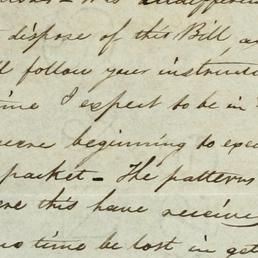 dispose of this Bill, a
follow your instructi
time I expect to be in
were beginning to exe
packet - The patterns
ere this have receive
no time be lost in get